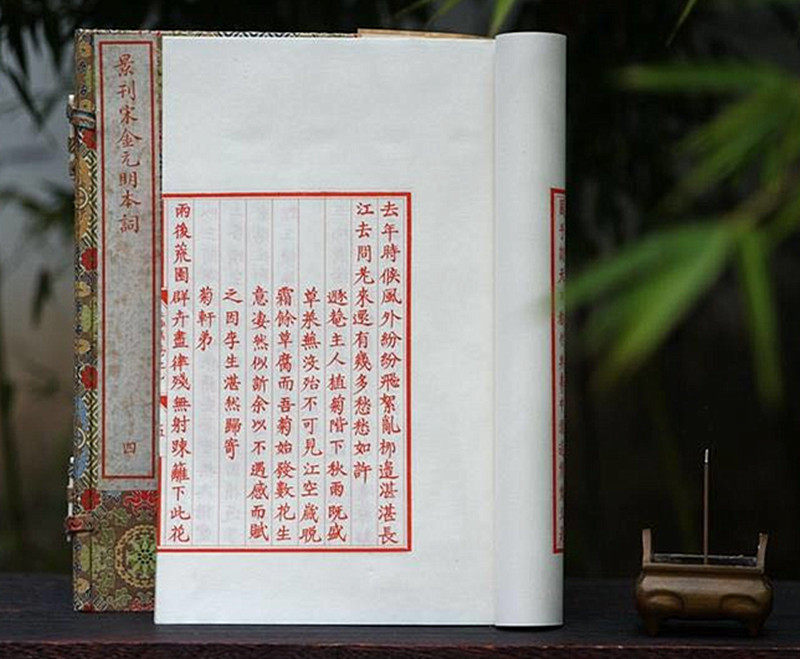 景刊宋金元明本詞
四
去年時候風外紛紛飛絮亂柳邊湛湛長
江去問先來還有幾多愁愁如許
遯菴主人植菊階下秋雨既盛
草萊蕪沒殆不可見江空歲晚
霜餘草腐而吾菊始發數花生
意凄然似訴余以不遇感而賦
之因李生湛然歸寄
菊軒弟
雨後荒園群卉盡律殘無射踈籬下此花